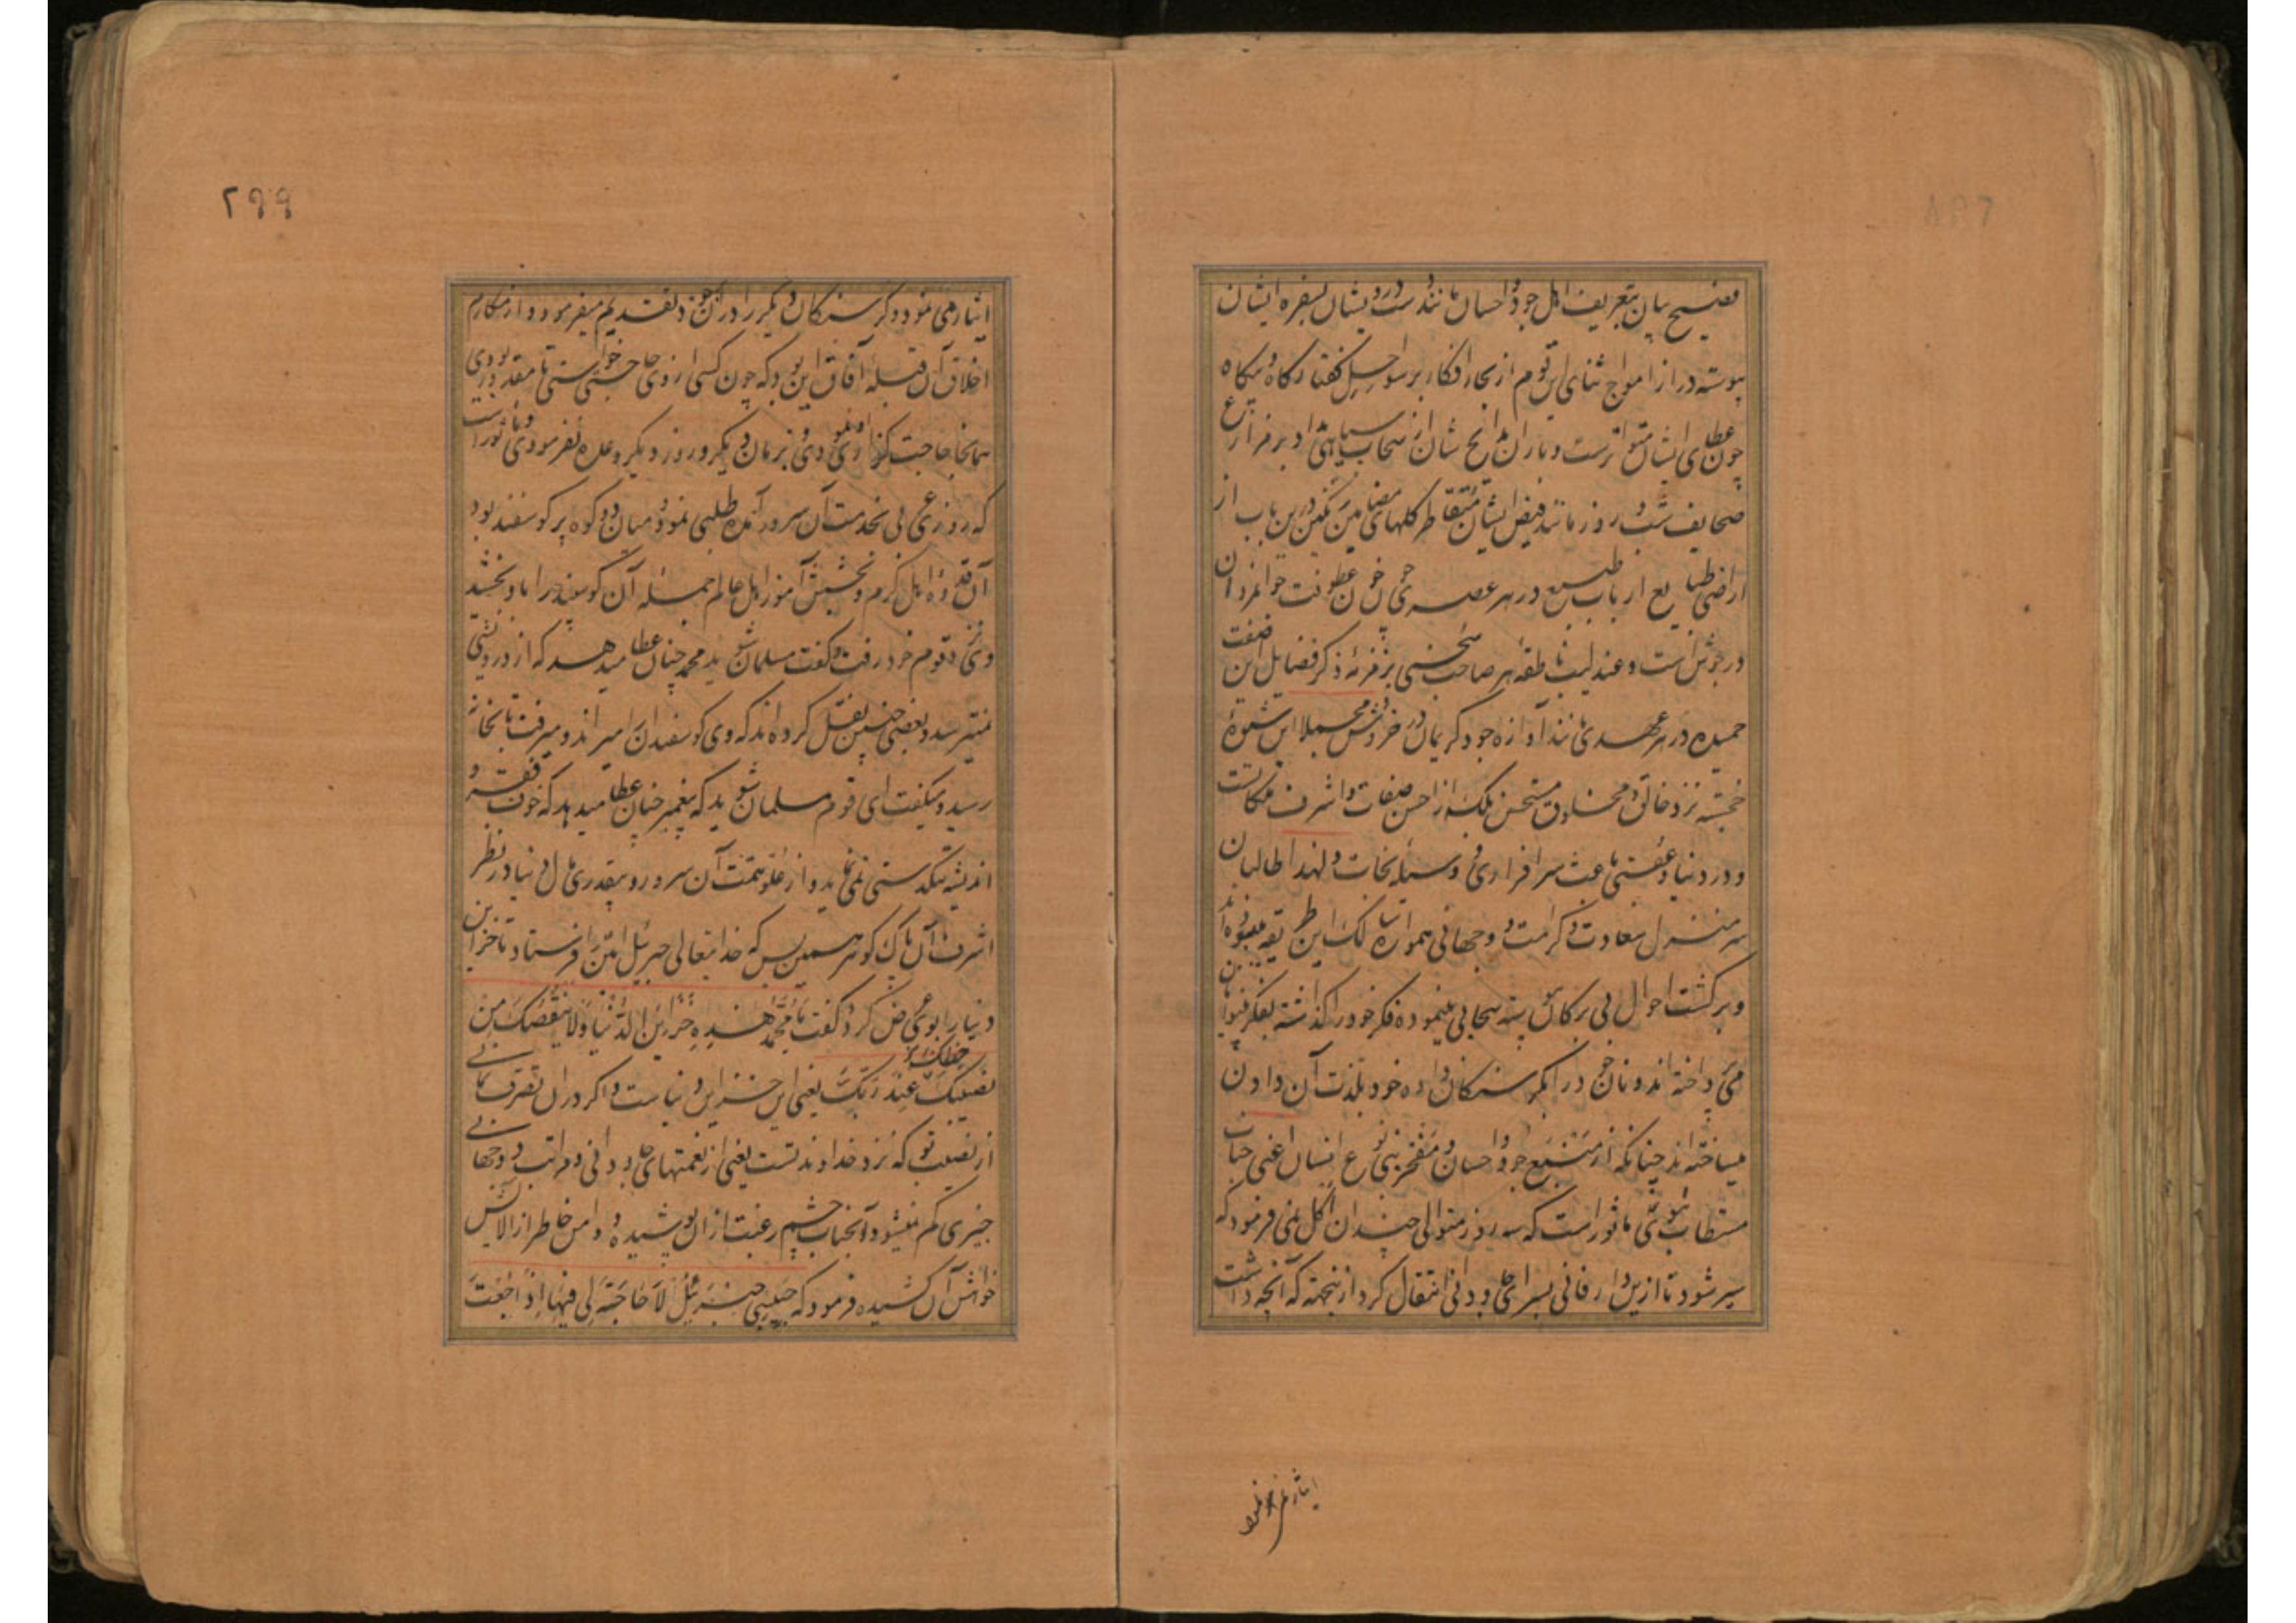 فصیح بیان بتعریف اهل جود و احسان مانند دست درویشان بسفره ایشان
پیوسته دراز امواج ثنای این قوم از بحار افکار بر سواحل گفتار گاه و بیگاه
چون عطای ایشان متواترست و باران مدایح شان از سحاب سیاهی مداد بر مزارع
صحایف شب و روز مانند فیض ایشان متقاطر گلهای مضامین رنگین درین باب از
اراضی طبایع ارباب طبع در هر عصری چون خوی عطوفت جوانمردان
در جوش است و عندلیب ناطقه هر صاحب سخنی بزمزمه ذکر فضایل این صفت
حمیده در هر عهدی مانند آوازه جود کریمان در خروش مجملا این شیوه
خجسته نزد خالق و مخلوق مستحسن بلکه از احسن صفات و اشرف ملکاتست
و در دنیا و عقبی باعث سرافرازی و وسیله نجات و لهذا طالبان
سر منزل سعادت و کرامت دوجهانی همواره سالک این طریقه میبوده‌اند
و برگشت احوال بی برگان سحابی مینموده فکر خود را گذاشته بفکر بینوایان
می پرداخته‌اند و نان خود را بگرسنگان داده خود بلذت آن دادن
میساخته‌اند چنانکه از منبع جود و احسان و مفخر بنی نوع انسان اعنی جناب
مستطاب نبوی ماثور است که سه روز متوالی چندان اکل نمی فرمود که
سیر شود تا ازین دار فانی بسرای جاودانی انتقال کرد از نیجهته که آنچه داشت
ایثار می نمود
۲۹۹
ایثار می نمود و گرسنگان دیگر را در آن بر خود تقدیم میفرمود و از مکارم
اخلاق آن قبله آفاق این بود که چون کسی از وی حاجتی خواستی تا مقدور بودی
همانجا حاجت گزاری او نمودی و بزمان دیگر و روز دیگر وعده نفرمودی و ماثور است
که روزی عربی بخدمت آن سرور آمده طلبی نمود و میان دو کوه پر گوسفند بود
آن قدوه اهل کرم و بخشش آموز اهل عالم جمله آن گوسفند را باو بخشید
وی نزد قوم خود رفت و گفت مسلمان شوید محمد چنان عطا میدهد که از درویشی
نمیترسد و بعضی چنین نقل کرده‌اند که وی گوسفندان میراند و میرفت تا بخانه
رسید و میگفت ای قوم مسلمان شوید که پیغمبر چنان عطا میدهد که خوف فقر و
اندیشه تنگدستی نمی نماید و از علو همت آن سرور و بیقدری مال دنیا در نظر
اشرف آن پاک گوهر همین بس که خدایتعالی جبرئیل امین را فرستاد تا خزاین
دنیا را بوی عرض کرد و گفت یا محمد هذه خزاین الدنیا و لا ینقصک من حظک
نصیبک عند ربک یعنی این خزاین دنیاست و اگر در ان تصرف نمایی
از نصیب تو که نزد خداوند تست یعنی از نعمتهای جاودانی و مراتب دوجهانی
چیزی کم نمیشود آنجناب چشم رغبت از ان پوشیده و دامن خاطر از الایش
خواهش آن کشیده فرمود که حبیبی جبرئیل لا حاجة لی فیها اذا جعت